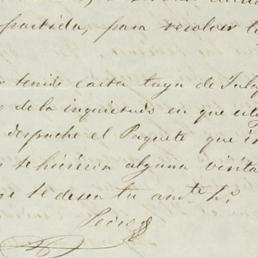 partida, para resolver l
tenido carta tuya de Jul
de la inquietud en que est
despache el Paquete que i
se hicieran alguna visita
se te desea tu am.te h.
Pedro